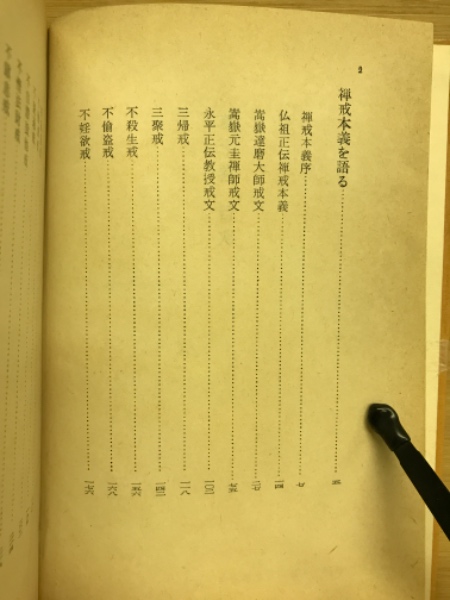 2
禅戒本義を語る……………五
禅戒本義序……………七
仏祖正伝禅戒本義……………一四
嵩嶽達磨大師戒文……………二七
嵩嶽元圭禅師戒文……………七五
永平正伝教授戒文……………一〇三
三帰戒……………一一八
三聚戒……………一四二
不殺生戒……………一五六
不偸盗戒……………一六八
不婬欲戒……………一七六